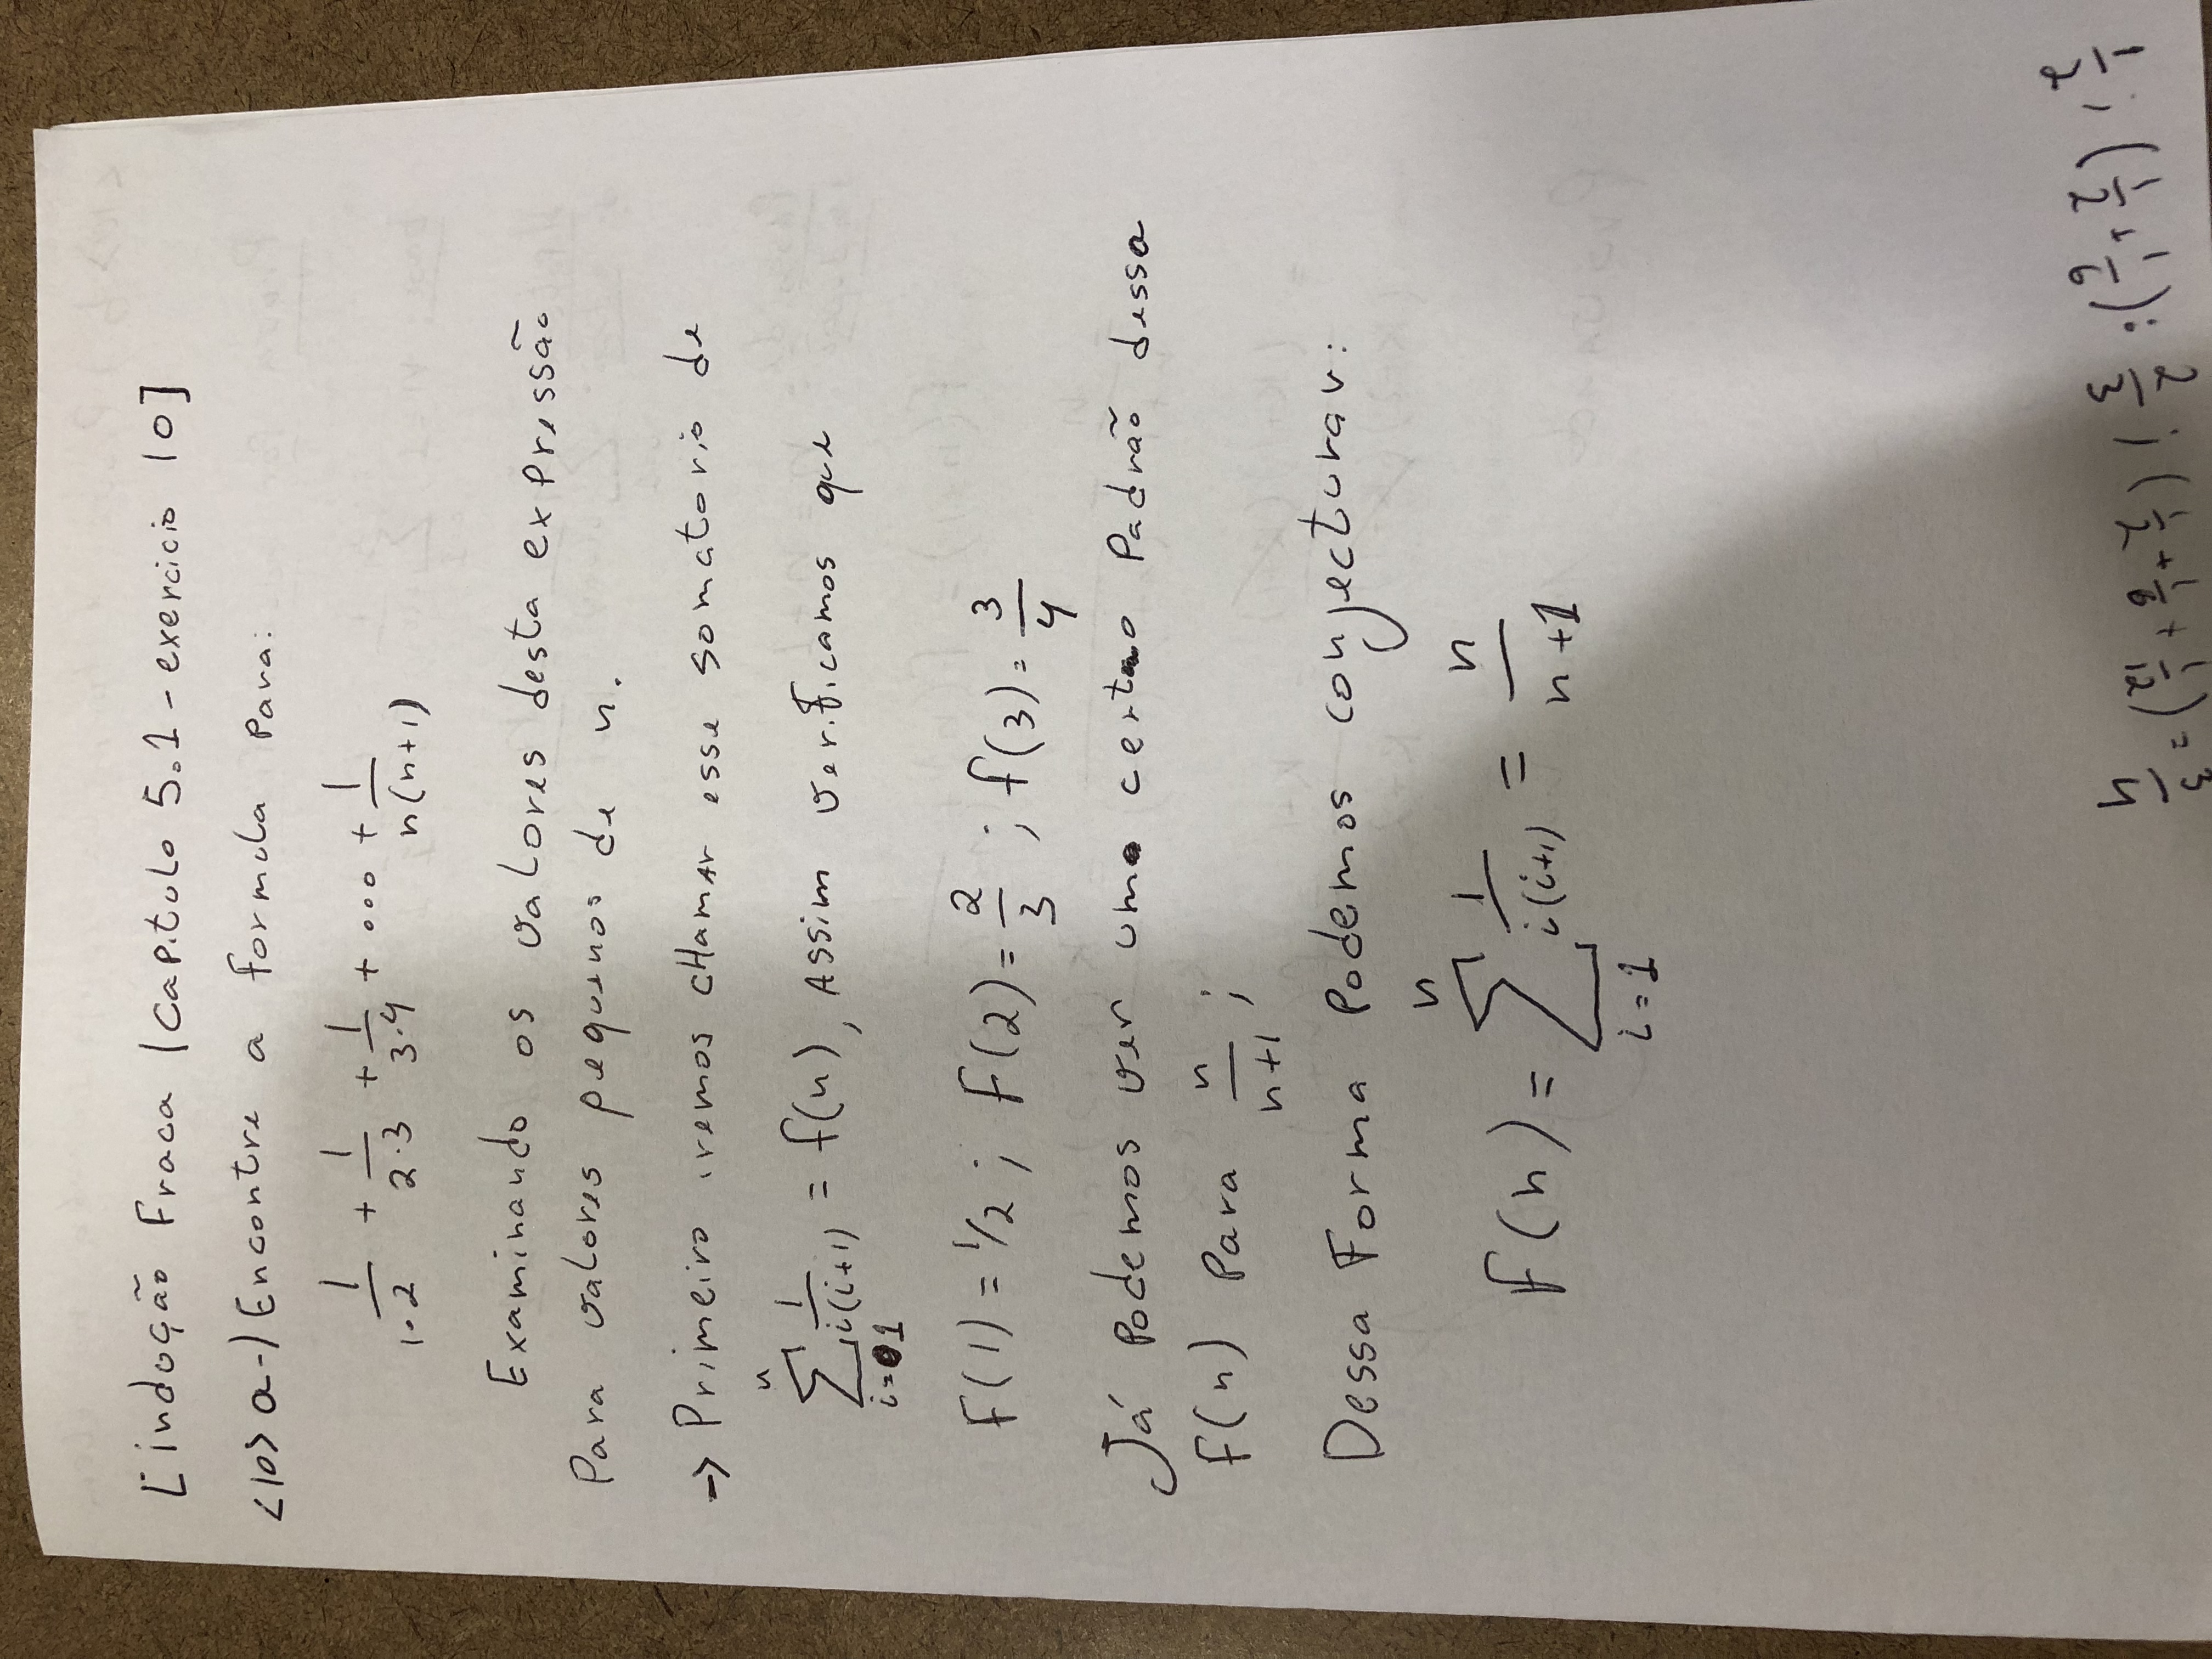 [indução Fraca | Capitulo 5.1 - exercicio 10]
<10> a-) Encontre a formula para:
1/(1·2) + 1/(2·3) + 1/(3·4) + ... + 1/(n(n+1))
Examinando os valores desta expressão
Para valores pequenos de n.
-> Primeiro iremos cHamAr esse somatorio de
∑_{i=1}^{n} 1/(i(i+1)) = f(n), Assim verificamos que
F(1) = 1/2 ; F(2) = 2/3 ; f(3) = 3/4
Já Podemos ver um certo Padrão dessa
F(n) Para n/(n+1) ;
Dessa Forma Podemos conjecturar:
F(n) = ∑_{i=1}^{n} 1/(i(i+1)) = n/(n+1)
1/2 ; (1/2 + 1/6) : 2/3 ; (1/2 + 1/6 + 1/12) = 3/4